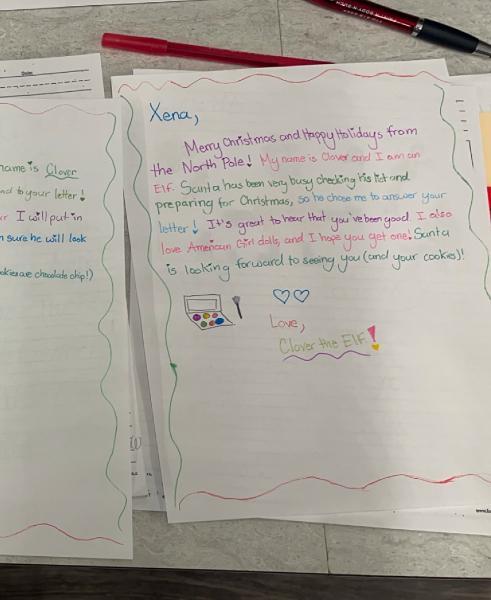 Date:
name is Clover
nd to your letter!
I will put in
sure he will look
okies are chocolate chip!)
Xena,
Merry Christmas and Happy Holidays from
the North Pole! My name is Clover and I am an
Elf. Santa has been very busy checking his list and
preparing for Christmas, so he chose me to answer your
letter! It's great to hear that you've been good. I also
love American Girl dolls, and I hope you get one! Santa
is looking forward to seeing you (and your cookies)!
Love,
Clover the Elf!